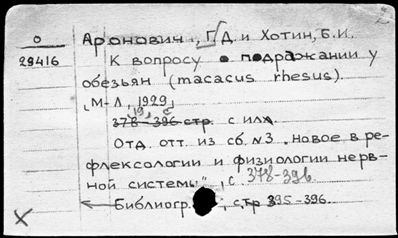 О
29416
Аронович, Г. Д. и Хотин, Б. И.
К вопросу о подражании у
обезьян (macacus rhesus).
М-Л, 1929,
378-396 стр. с илл.
Отд. отт. из сб. №3 "Новое в ре-
флексологии и физиологии нерв-
ной системы", с. 378-396.
Библиогр. , стр 395-396.